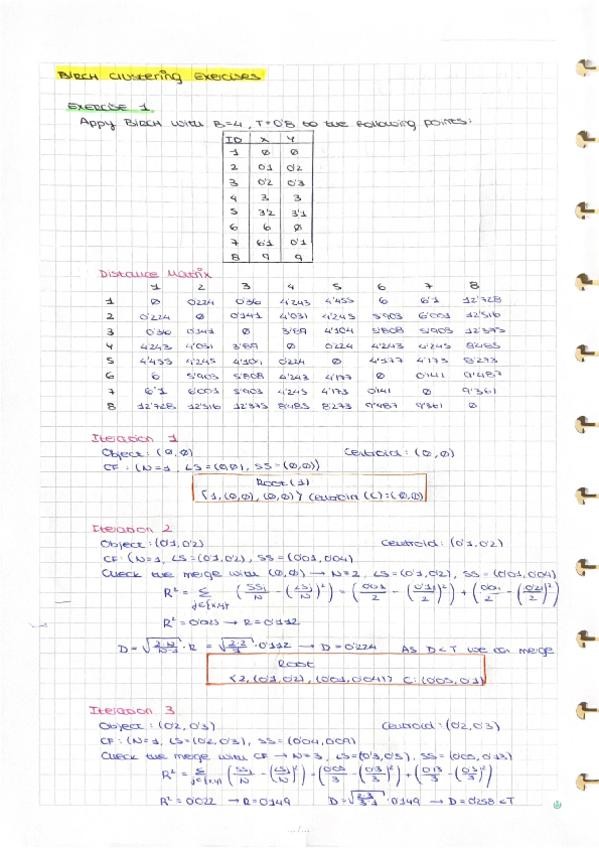 BIRCH Clustering Exercises
EXERCISE 1
Appy BIRCH with B=4, T=0'8 to the following points:
ID X Y
1 Ø Ø
2 0'1 0'2
3 0'2 0'3
4 3 3
5 3'2 3'1
6 6 Ø
7 6'1 0'1
8 9 9
Distance Matrix
1 2 3 4 5 6 7 8
1 Ø 0'224 0'36 4'243 4'455 6 6'1 12'728
2 0'224 Ø 0'141 4'031 4'245 5'903 6'001 12'516
3 0'36 0'141 Ø 3'89 4'104 5'808 5'903 12'375
4 4'243 4'031 3'89 Ø 0'224 4'243 4'245 8'485
5 4'455 4'245 4'104 0'224 Ø 4'177 4'173 8'273
6 6 5'903 5'808 4'243 4'177 Ø 0'141 9'487
7 6'1 6'001 5'903 4'245 4'173 0'141 Ø 9'361
8 12'728 12'516 12'375 8'485 8'273 9'487 9'361 Ø
Iteration 1
Object: (Ø,Ø) Centroid: (Ø,Ø)
CF: (N=1, LS=(Ø,Ø), SS=(Ø,Ø))
Root (1)
{1, (Ø,Ø), (Ø,Ø)} (C): (Ø,Ø)
Iteration 2
Object: (0'1,0'2) Centroid: (0'1,0'2)
CF: (N=1, LS=(0'1,0'2), SS=(0'01,0'04)
Check the merge with (Ø,Ø) → N=2, LS=(0'1,0'2), SS=(0'01,0'04)
R² = Σ j∈{x,y} (SSj/N - (LSj/N)²) = (0'01/2 - (0'1/2)²) + (0'04/2 - (0'2/2)²)
R² = 0'0125 → R = 0'112
D = √(2·N/N-1) · R = √(2·2/1) · 0'112 → D = 0'224 As D<T we can merge
Root
{2, (0'1,0'2), (0'01,0'04)} C: (0'05,0'1)
Iteration 3
Object: (0'2,0'3) Centroid: (0'2,0'3)
CF: (N=1, LS=(0'2,0'3), SS=(0'04,0'09)
Check the merge with CF → N=3, LS=(0'3,0'5), SS=(0'05,0'13)
R² = Σ j∈{x,y} (SSj/N - (LSj/N)²) = (0'05/3 - (0'3/3)²) + (0'13/3 - (0'5/3)²)
R² = 0'022 → R = 0'149 D = √(2·3/3-1) · 0'149 → D = 0'258 < T